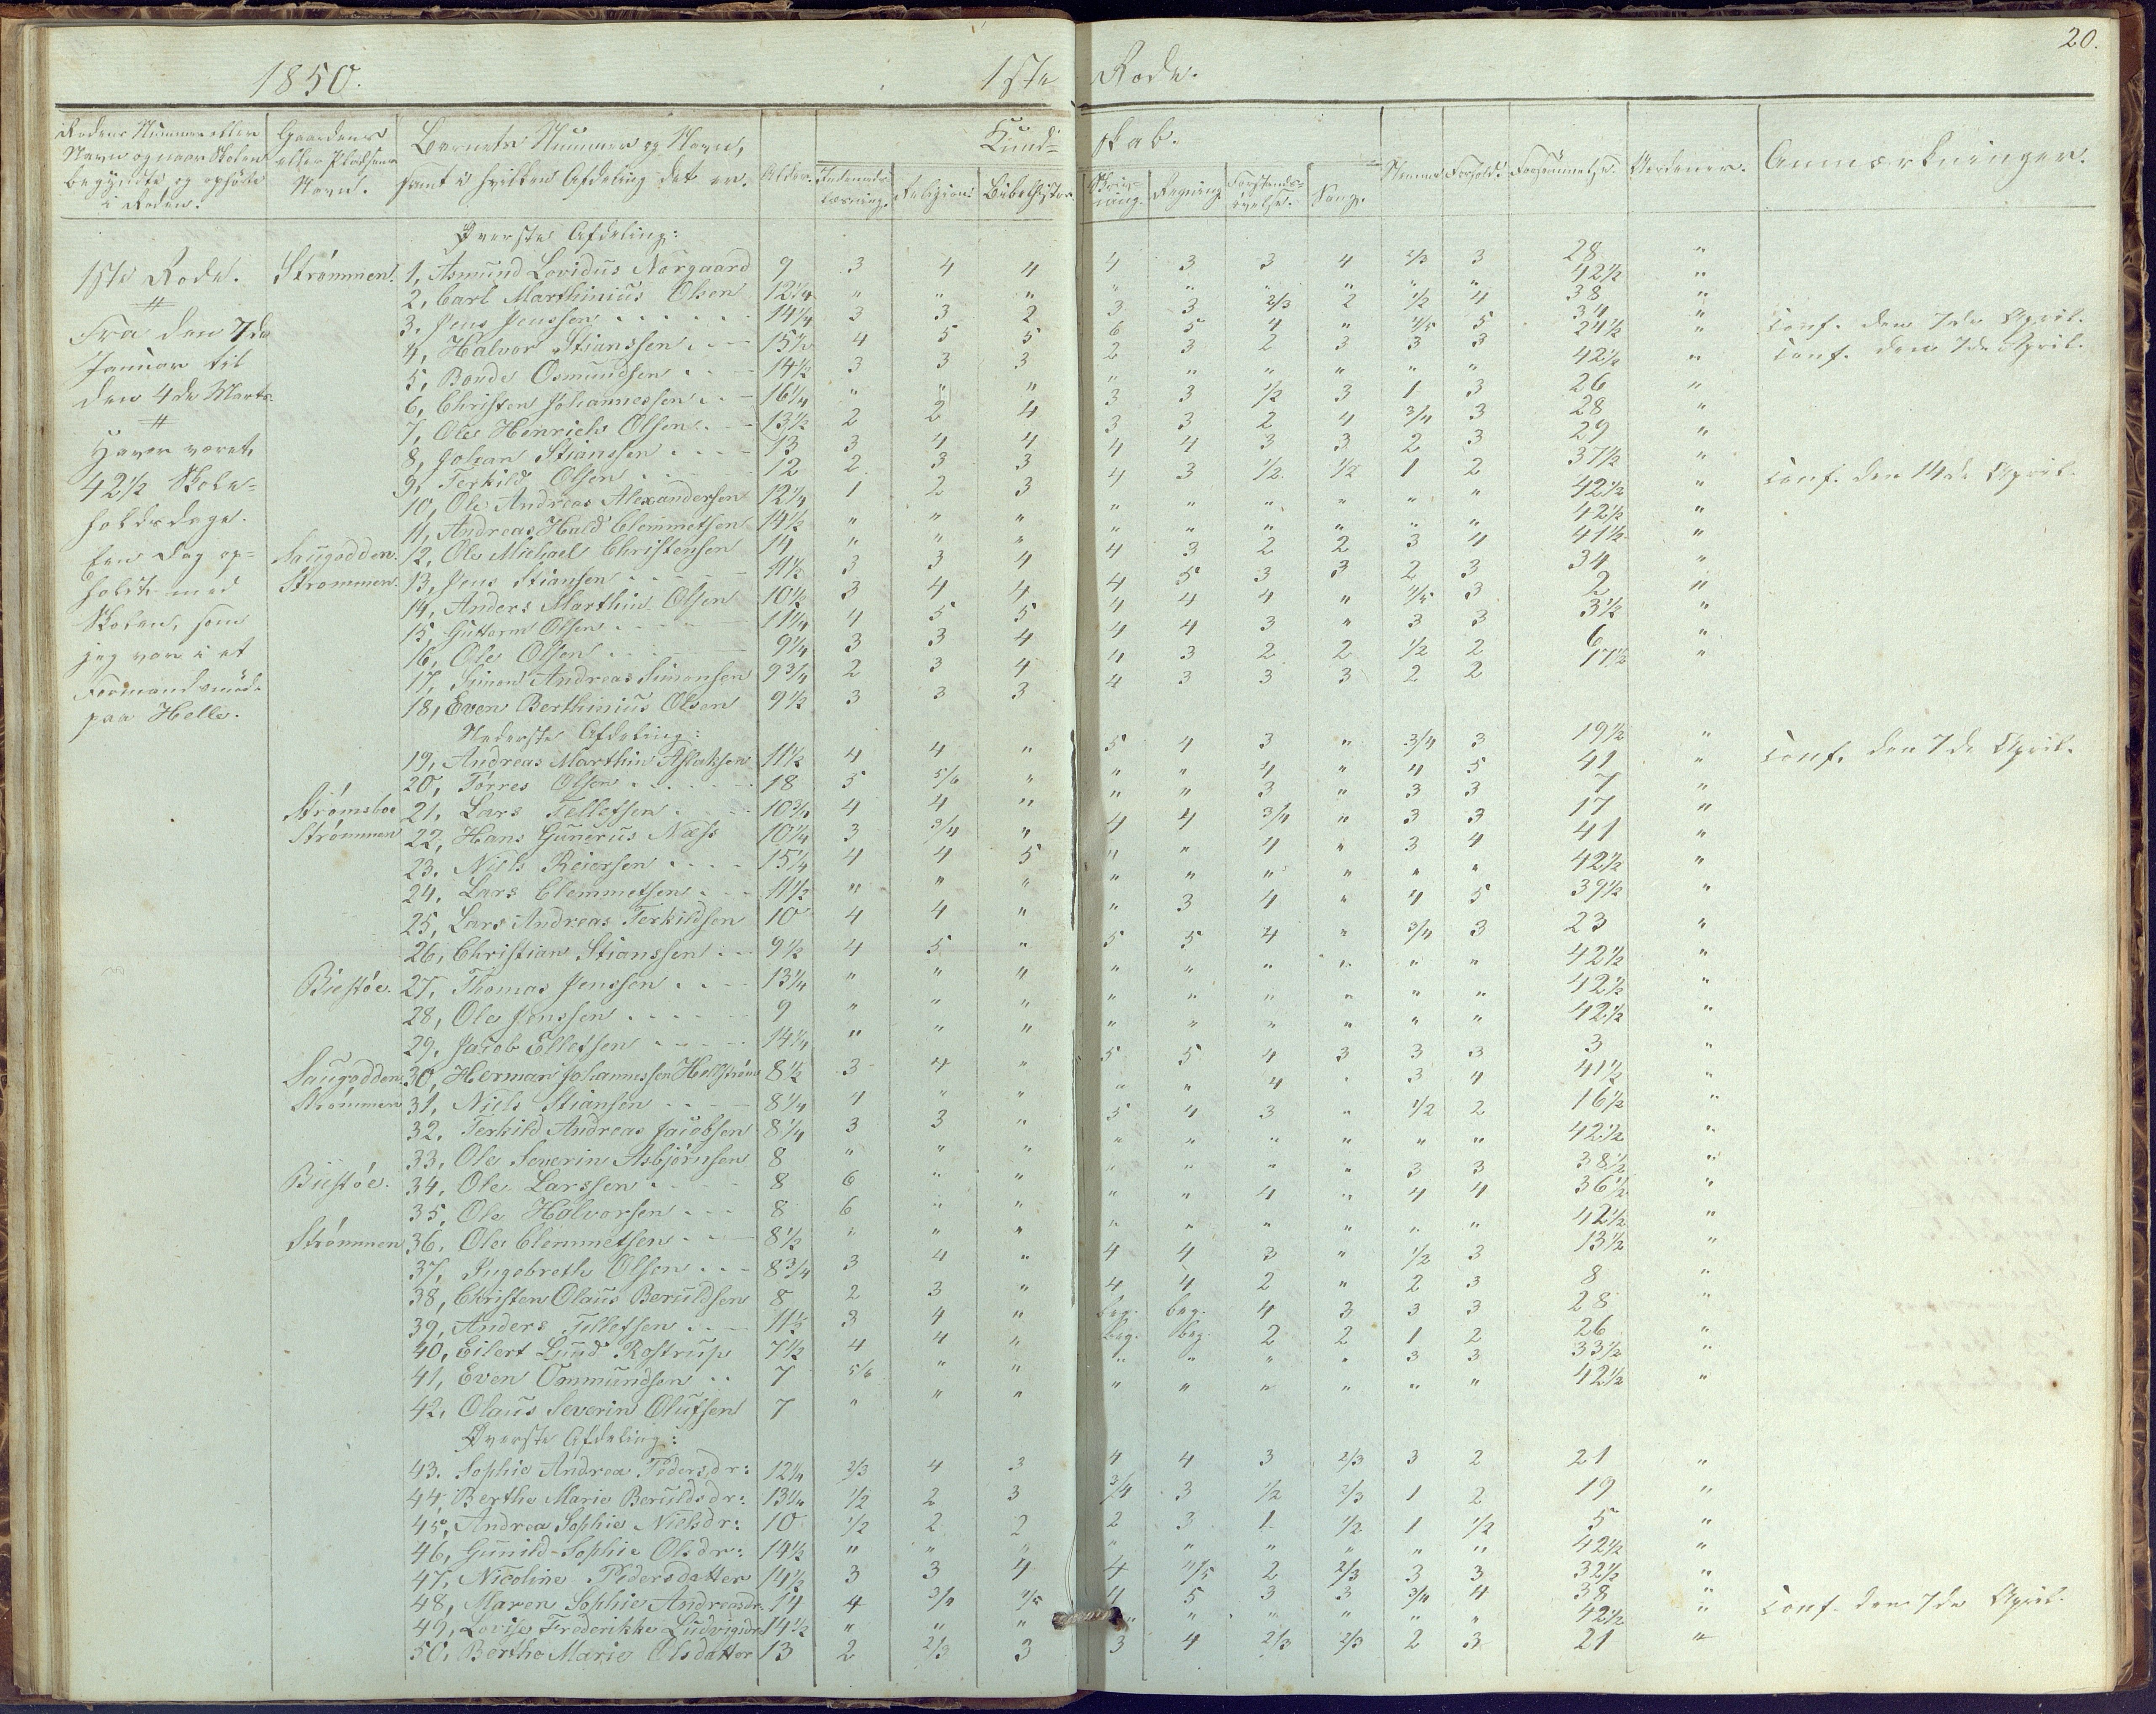 20.
1850. 1ste Rode.
Rodens Nummer eller Navn og naar Skolen begyndte og ophørte i Roden.
Gaardens eller Pladsens Navn.
Barnets Nummer og Navn, samt i hvilken Afdeling det er.
Alder.
Kundskab.
Indenadslæsning. Religion. Bibelhistor. Skrivning. Regning. Forstandsøvelse. Sang.
Nemme Forhold. Forsømmelse. Anmærkninger.
1ste Rode.
Fra den 7de
Januar til
den 4de Marts.
Haver været
42 1/2 Skole=
holdsdage.
Een Dag op=
holdt med
Skolen, som
jeg var i et
Formandsmøde
paa Helle.
Øverste Afdeling:
Strømmen. 1, Asmund Lovidus Norgaard 9 3 4 4 4 3 3 4 2/3 3 28 "
2, Carl Marthinius Olsen 12 1/4 " " " " " " " " " 42 1/2 "
3, Jens Jenssen 14 1/4 3 3 2 3 3 2/3 2 1/2 4 38 "
4, Halvor Stianssen 15 1/2 4 5 5 6 5 4 " 4/5 5 34 " Conf. den 7de April.
5, Bonde Osmundsen 14 1/2 3 3 3 2 3 2 3 3 3 24 1/2 " Conf. den 7de April.
6, Christen Johannessen 16 1/4 " " " " " " " " " 42 1/2 "
7, Ole Henrich Olsen 13 1/2 2 2 4 3 3 1/2 3 1 3 26 "
8, Johan Stianssen 13 3 4 4 3 3 2 4 3/4 3 28 "
9, Terkild Olsen 12 2 3 3 4 4 3 3 2 3 29 "
10, Ole Andreas Alexandersen 12 1/4 1 2 3 4 3 1/2 1/2 1 2 37 1/2 "
11, Andreas Hald Clemmetsen 14 1/2 " " " " " " " " " 42 1/2 " Conf. den 14de April.
Saugodden. 12, Ole Michael Christensen 14 " " " " " " " " " 42 1/2 "
Strømmen. 13, Jens Stiansen 11 1/2 3 3 4 4 3 2 2 3 4 41 1/2 "
14, Anders Marthin Olsen 10 1/2 3 4 4 4 5 3 3 2 3 34 "
15, Guttorm Olsen 11 1/4 4 5 5 4 4 4 " 4/5 3 2 "
16, Ole Olsen 9 1/4 3 3 4 4 4 3 " 3 3 3 1/2 "
17, Simon Andreas Simonsen 9 3/4 2 3 4 4 3 2 2 1/2 2 6 "
18, Even Berthinius Olsen 9 1/2 3 3 3 4 3 3 3 2 2 17 1/2 "
Nederste Afdeling:
19, Andreas Marthin Aslaksen 11 1/2 4 4 " 5 4 3 " 3/4 3 19 1/2 "
20, Torres Olsen 18 5 5/6 " " " 4 " 4 5 41 " Conf. den 7de April.
Strømsboe 21, Lars Tellefsen 10 3/4 4 4 " " " 3 " 3 3 7 "
Strømmen 22, Hans Gunerus Næss 10 1/4 3 3/4 " 4 4 3/4 " 3 3 17 "
23, Niels Reiersen 15 1/4 4 4 5 " " 4 " 3 4 41 "
24, Lars Clemmetsen 11 1/2 " " " " " " " " " 42 1/2 "
25, Lars Andreas Terkildsen 10 4 4 " " 3 4 " 4 5 39 1/2 "
26, Christian Stianssen 9 1/2 4 5 " 5 5 4 " 3/4 3 23 "
Biestøe. 27, Thomas Jenssen 13 1/4 " " " " " " " " " 42 1/2 "
28, Ole Jenssen 9 " " " " " " " " " 42 1/2 "
29, Jacob Ellefsen 14 1/4 " " " " " " " " " 42 1/2 "
Saugodden 30, Herman Johannessen Hellstrøm 8 1/2 3 4 " 5 5 4 3 3 3 3 "
Strømmen 31, Niels Stiansen 8 1/4 4 " " " " 4 " 3 4 41 1/2 "
32, Terkild Andreas Jacobsen 8 1/4 3 3 " 5 4 3 " 1/2 2 16 1/2 "
33, Ole Severin Asbjørnsen 8 " " " " " " " " " 42 1/2 "
Biestøe. 34, Ole Larssen 8 6 " " " " " " 3 3 38 1/2 "
35, Ole Halvorsen 8 6 " " " " 4 " 4 4 36 1/2 "
Strømmen 36, Ole Clemmetsen 8 1/2 " " " " " " " " " 42 1/2 "
37, Ingebreth Olsen 8 3/4 3 4 " 4 4 3 " 1/2 3 13 1/2 "
38, Christen Olaus Beruldsen 8 2 3 " 4 4 2 " 2 3 8 "
39, Anders Tellefsen 11 1/2 3 4 " beg. beg. 4 3 3 3 28 "
40, Eilert Lund Rostrup 7 1/2 4 4 " beg. beg. 2 2 1 2 26 "
41, Even Ommundsen 7 5/6 " " " " " " 3 3 33 1/2 "
42, Olaus Severin Olufsen 7 " " " " " " " " " 42 1/2 "
Øverste Afdeling:
43. Sophie Andrea Pedersdr: 12 1/4 2/3 4 3 4 4 3 2/3 3 2 21 "
44, Berthe Marie Beruldsdr: 13 1/4 1/2 2 3 3/4 3 1/2 2/3 1 2 19 "
45, Andrea Sophie Nielsdr: 10 1/2 2 2 2 3 1 1/2 1 1/2 5 "
46, Gunild Sophie Olsdr: 14 1/2 " " " " " " " " " 42 1/2 "
47, Nicoline Pedersdatter 14 1/2 3 3 4 4 4/5 2 2/3 3 3 32 1/2 "
48, Maren Sophie Andreasdr. 14 4 3/4 4/5 4 5 3 3 3/4 4 38 "
49, Lovise Frederikke Ludvigsdr 14 1/2 " " " " " " " " " 42 1/2 " Conf. den 7de April.
50, Berthe Marie Olsdatter 13 2 2/3 3 3 4 2/3 2/3 2 3 21 "